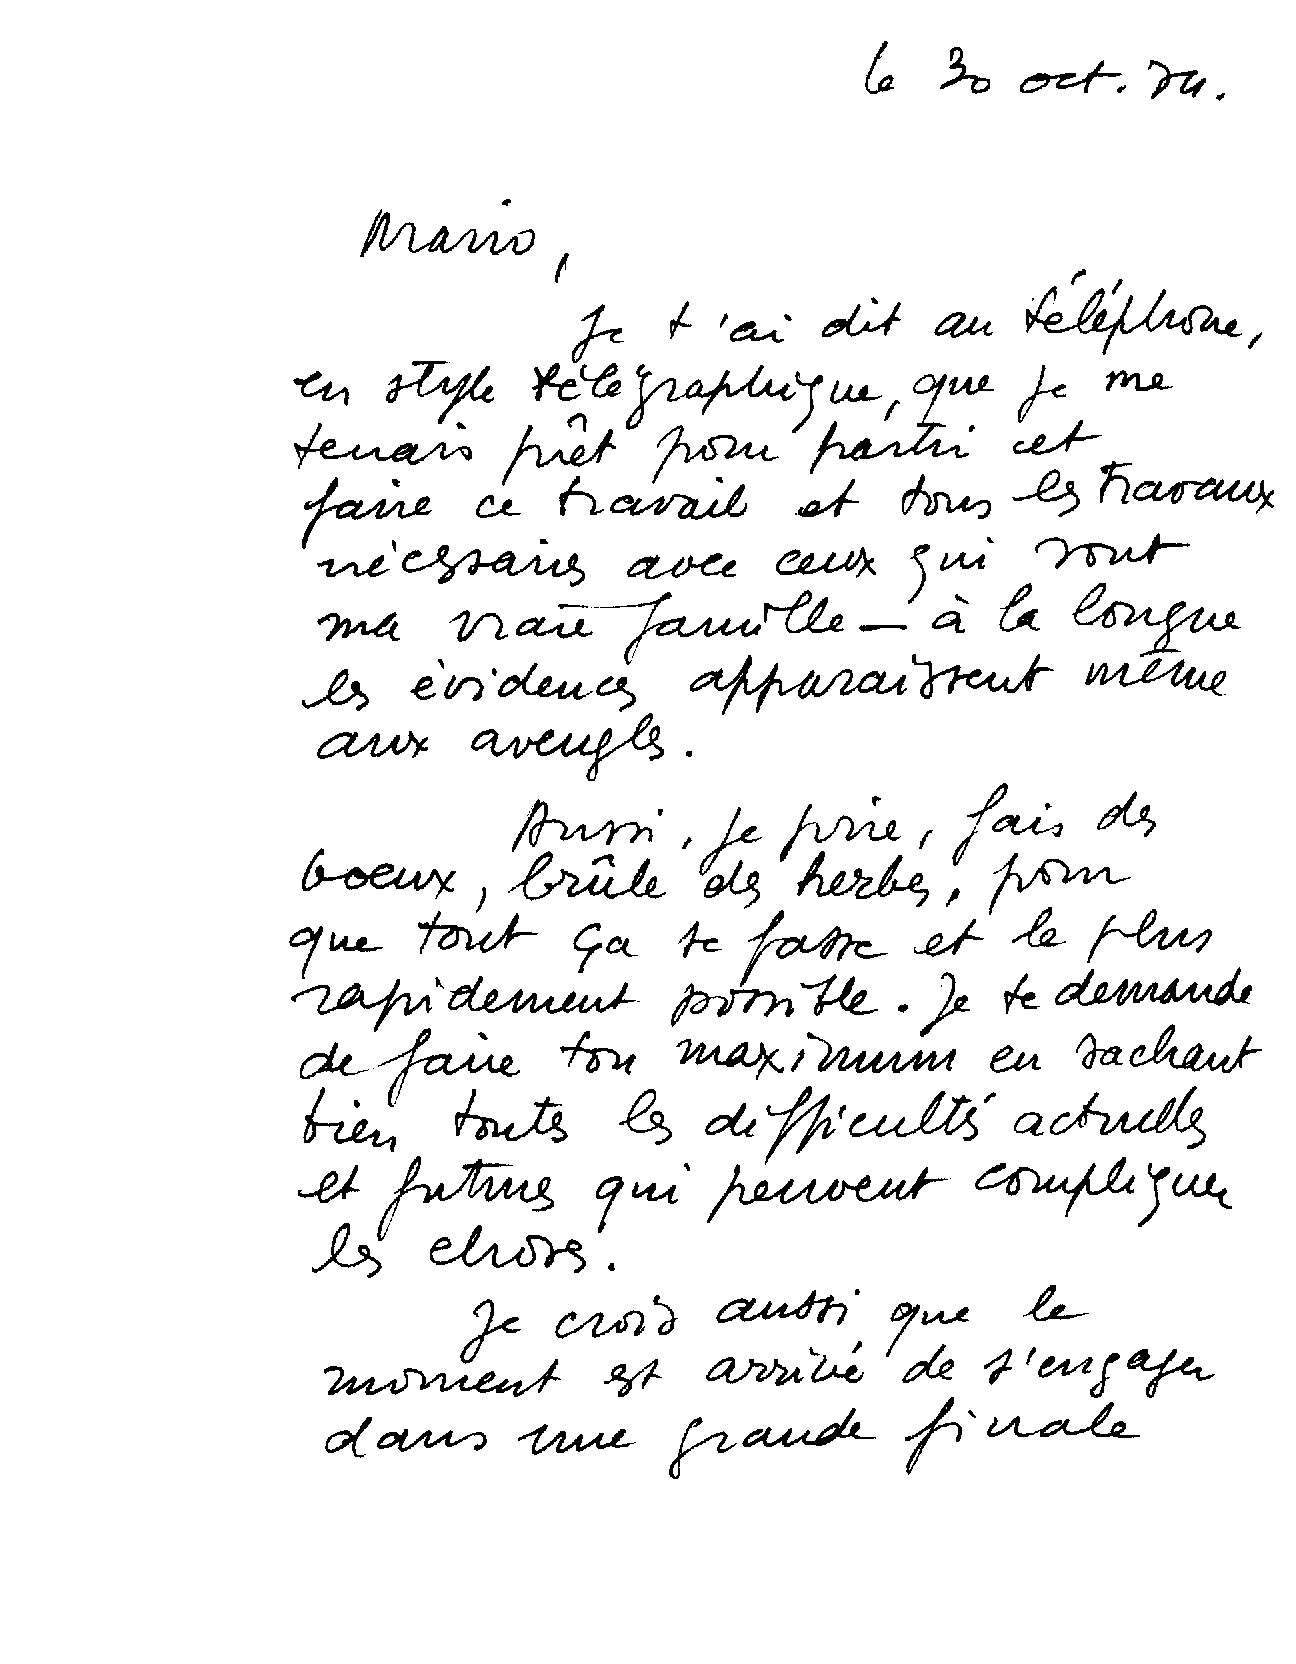 le 30 oct. 74.
Mario,
Je t'ai dit au téléphone,
en style télégraphique, que je me
tenais prêt pour partir et
faire ce travail et tous les travaux
nécessaires avec ceux qui sont
ma vraie famille — à la longue
les évidences apparaissent même
aux aveugles.
Aussi, je prie, fais des
voeux, brûle des herbes, pour
que tout ça se fasse et le plus
rapidement possible. Je te demande
de faire ton maximum en sachant
bien toutes les difficultés actuelles
et futures qui peuvent compliquer
les choses.
Je crois aussi que le
moment est arrivé de s'engager
dans une grande finale